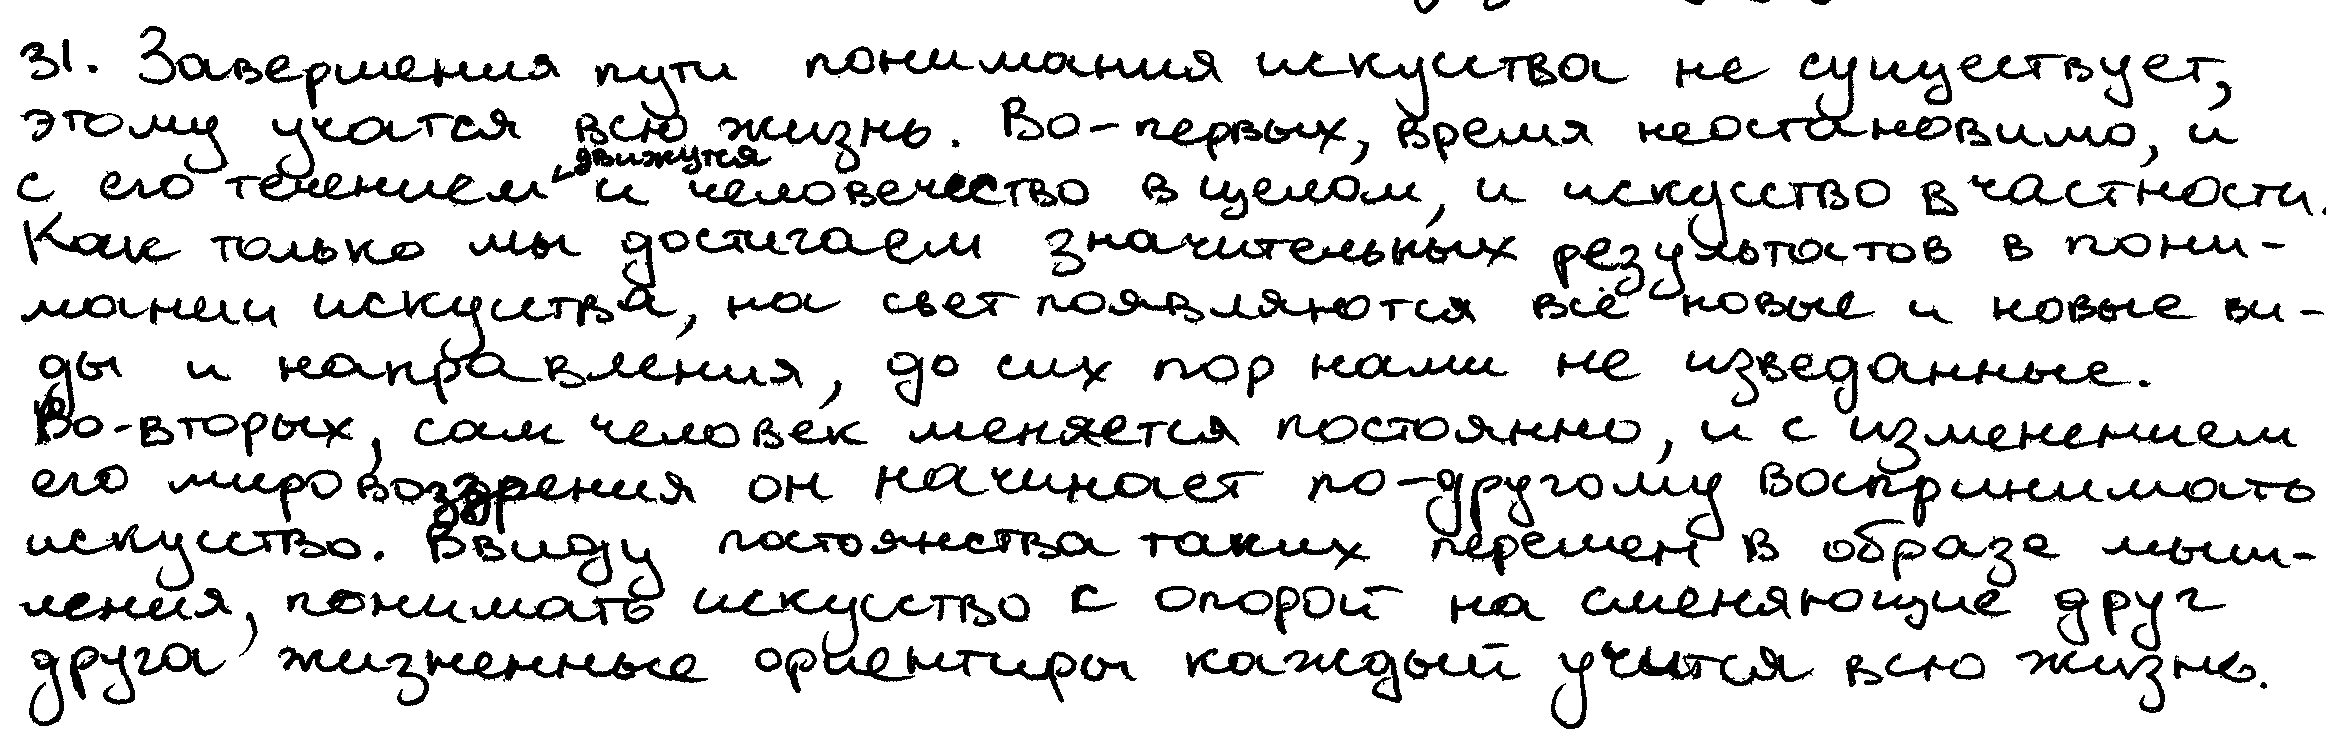 31. Завершения пути понимания искуства не существует,
этому учатся всю жизнь. Во-первых, время неостановимо, и
с его течением движутся и человечество в целом, и искусство в частности.
Как только мы достигаем значительных результатов в пони-
мании искуства, на свет появляются всё новые и новые ви-
ды и направления, до сих пор нами не изведанные.
Во-вторых, сам человек меняется постоянно, и с изменением
его мировоззрения он начинает по-другому воспринимать
искуство. Ввиду постоянства таких перемен в образе мыш-
ления, понимать искусство с опорой на сменяющие друг
друга жизненные ориентиры каждый учится всю жизнь.